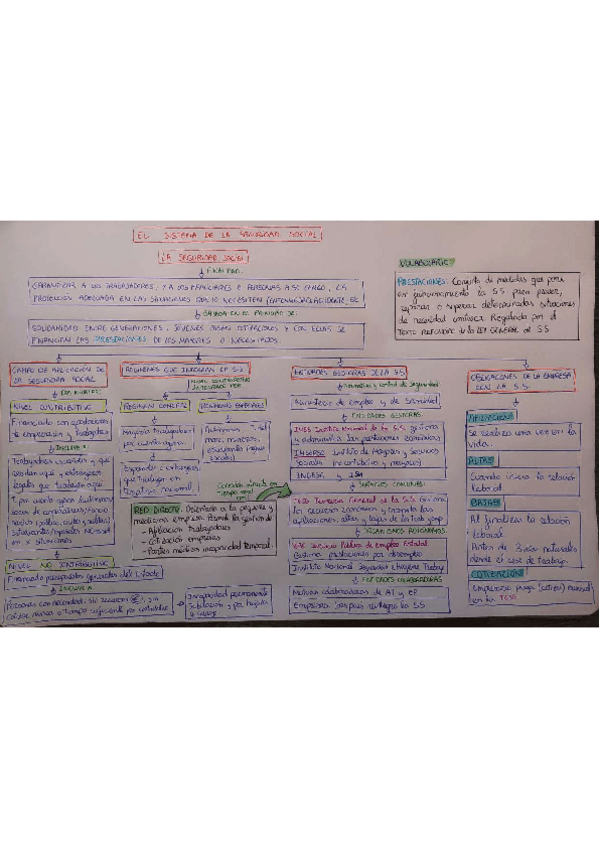 EL SISTEMA DE LA SEGURIDAD SOCIAL
LA SEGURIDAD SOCIAL
FINALIDAD
GARANTIZAR A LOS TRABAJADORES, Y A LOS FAMILIARES O PERSONAS A SU CARGO, LA
PROTECCIÓN ADECUADA EN LAS SITUACIONES QUE LO NECESITEN (ENFERMEDAD, ACCIDENTE, ETC
BASADA EN EL PRINCIPIO DE:
SOLIDARIDAD ENTRE GENERACIONES, JÓVENES PAGAN COTIZACIONES Y CON ELLAS SE
FINANCIAN LAS PRESTACIONES DE LOS MAYORES O NECESITADOS.
VOCABULARIO
PRESTACIONES: Conjunto de medidas que pone
en funcionamiento la SS para prever,
reparar o superar determinadas situaciones
de necesidad Regulada por el
TEXTO REFUNDIDO de la LEY GENERAL de SS
CAMPO DE APLICACIÓN DE
LA SEGURIDAD SOCIAL
NIVEL CONTRIBUTIVO
Financiado con aportaciones
de empresarios y trabajadores
INCLUYE
Trabajadores españoles y que
residan aquí y extranjeros
legales que trabajen aquí
NIVEL NO CONTRIBUTIVO
Financiado presupuestos generales del Estado
INCLUYE A
Personas con necesidad, sin recursos
Incapacidad permanente
Jubilación
REGÍMENES QUE INTEGRAN EP S.S
RÉGIMEN GENERAL
Mayoría trabajadores
por cuenta ajena
Españoles o extranjeros
que trabajen en
territorio nacional
REGÍMENES ESPECIALES
Autónomos
RED DIRECTO: Destinado a la pequeña y
mediana empresa. Permite la gestión de
- Afiliación trabajadores
- Cotización empresas
- Partes médicos incapacidad temporal.
Conexión directa en
tiempo real
ENTIDADES GESTORAS DE LA S.S
Ministerio de empleo y de Sanidad
ENTIDADES GESTORAS:
INSS Instituto Nacional de la S.S gestiona
y administra las prestaciones económicas
IMSERSO Instituto de Mayores y Servicios
Sociales
INGESA y ISM
SERVICIOS COMUNES:
TGSS Tesorería General de la S.S
los recursos económicos y tramita las
afiliaciones, altas y bajas de los trabajadores
ORGANISMOS AUTÓNOMOS
SEPE Servicio Público de empleo Estatal
Gestiona prestaciones por desempleo
Instituto Nacional Seguridad e Higiene Trabajo
ENTIDADES COLABORADORAS
Mutuas colaboradoras de AT y EP
Empresas
OBLIGACIONES DE LA EMPRESA
CON LA S.S.
AFILIACIÓN
Se realiza una vez en la
vida.
ALTAS
Cuando inicia la relación
laboral.
BAJAS
Al finalizar la relación
laboral.
Antes de 3 días naturales
desde el cese de trabajo.
COTIZACIÓN
Empresario paga (cotiza) mensual
en la TGSS